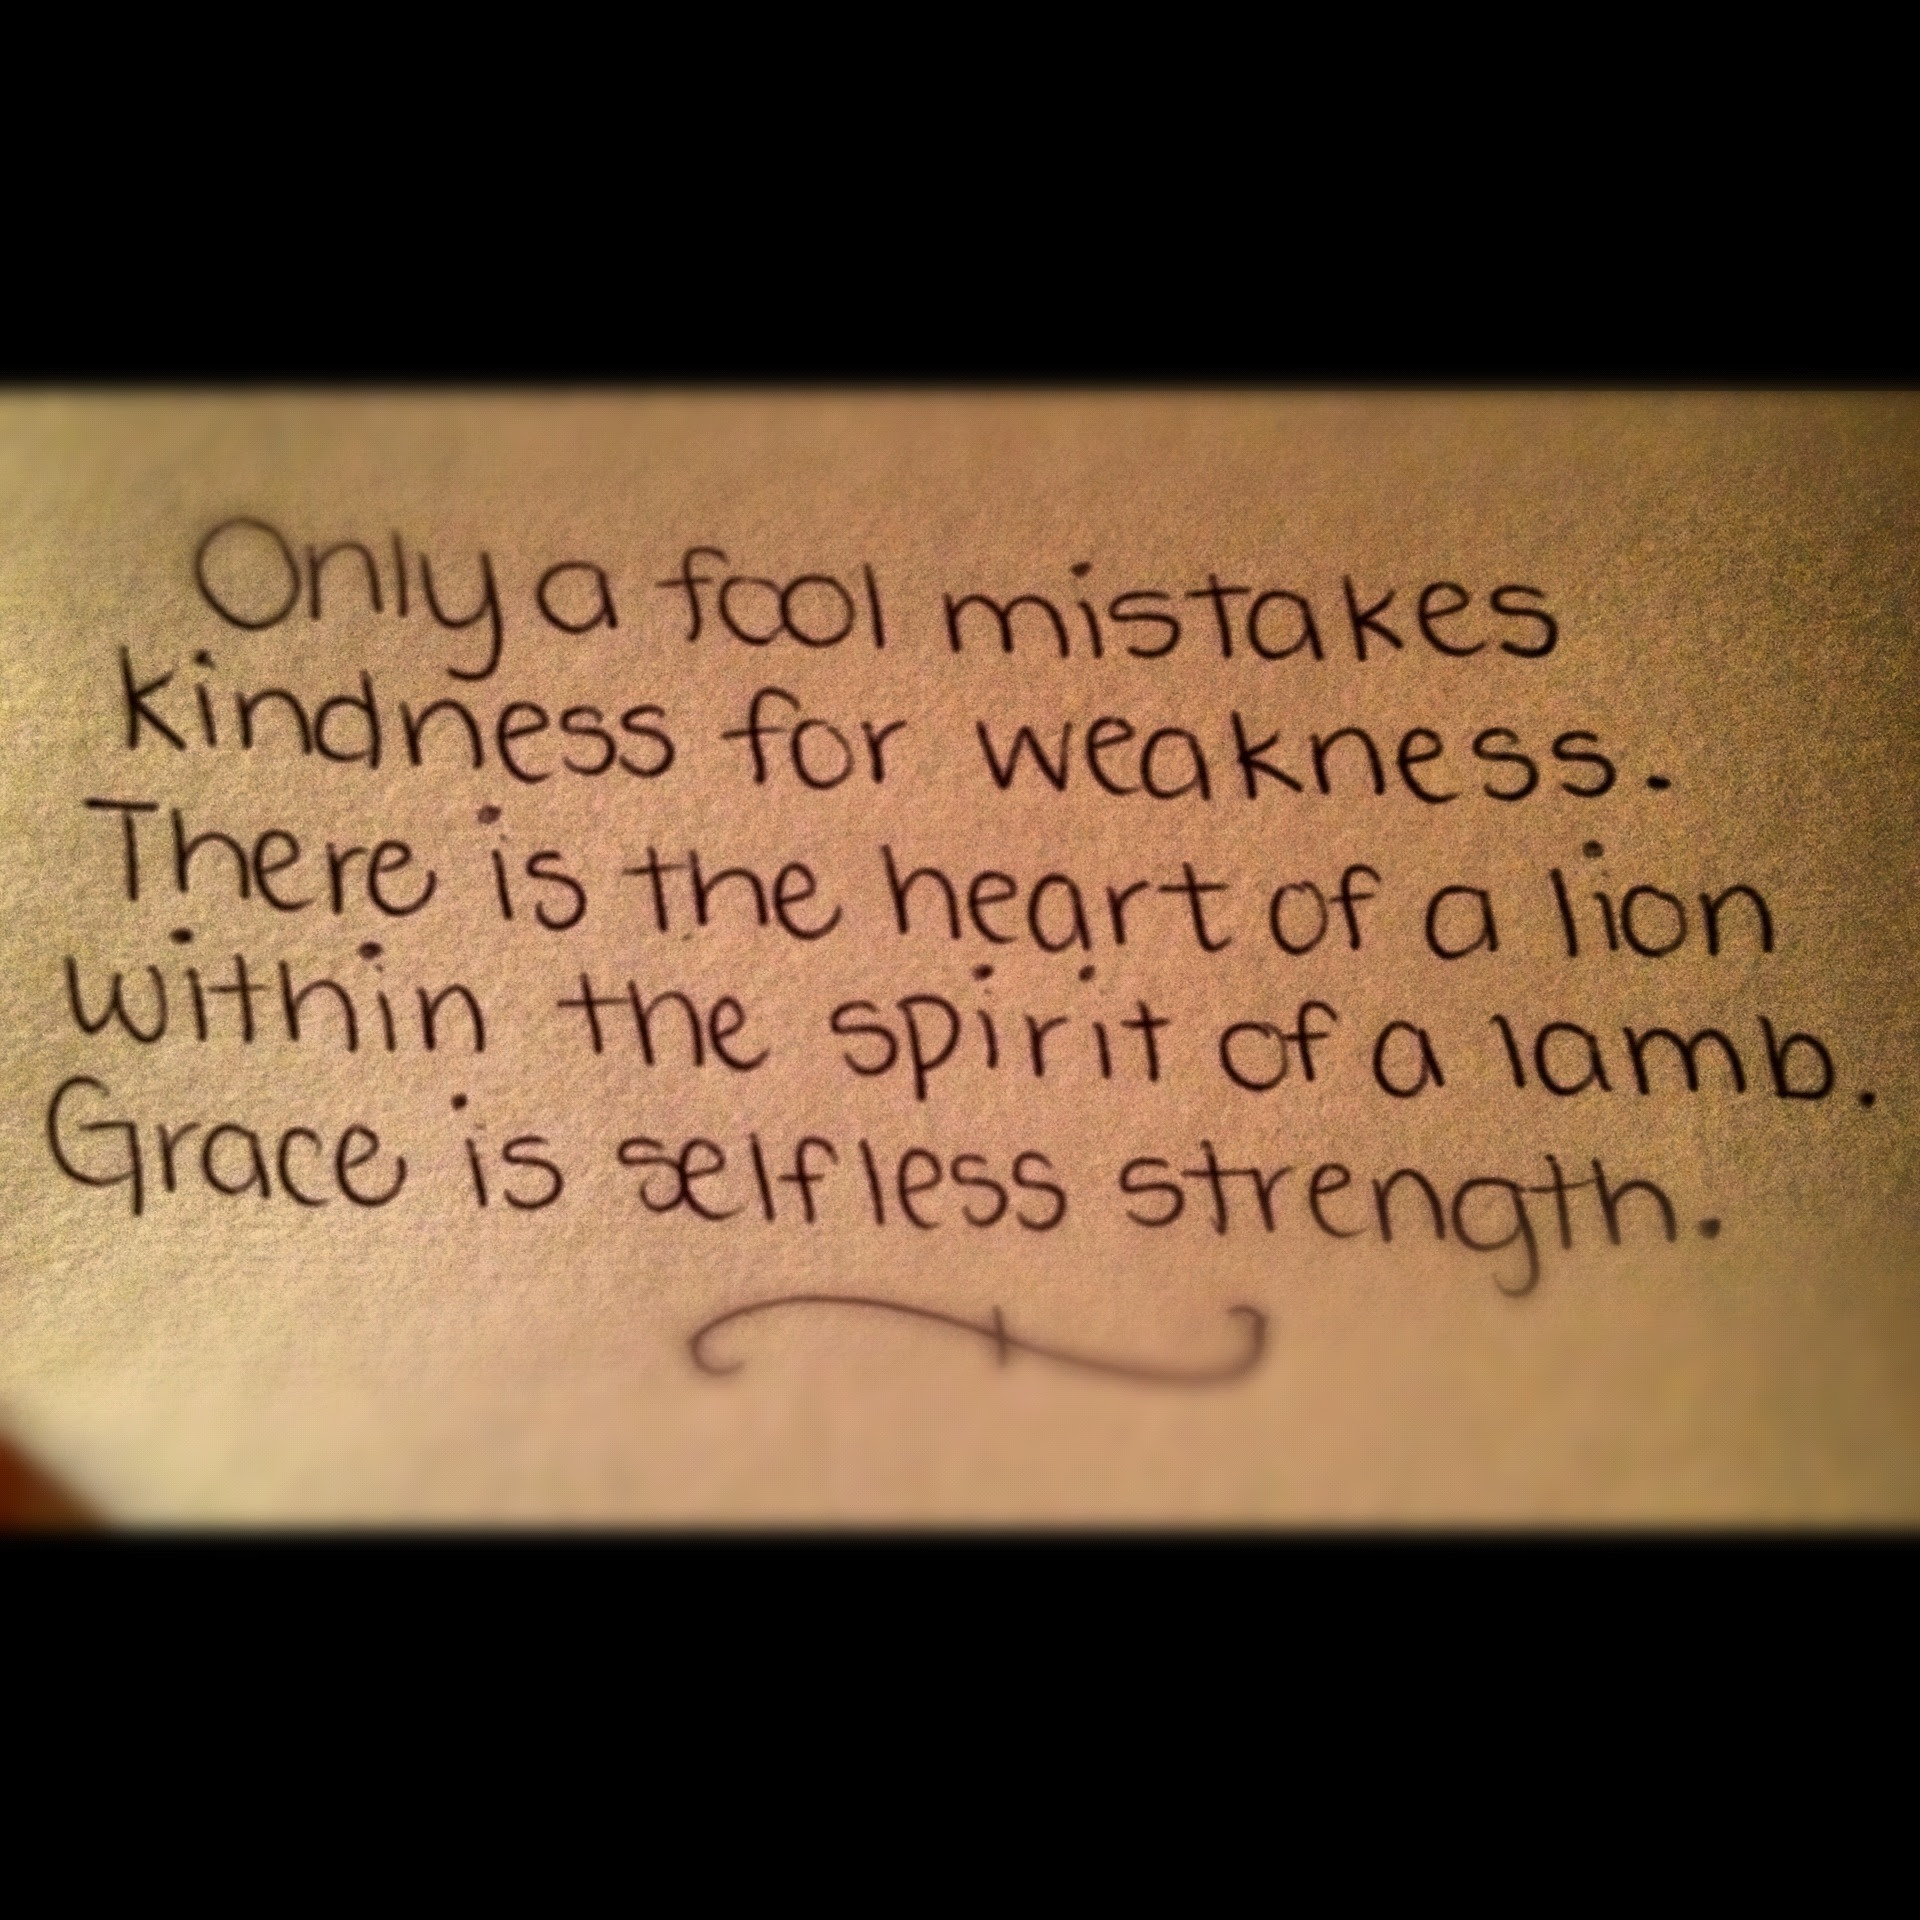 Only a fool mistakes
kindness for weakness.
There is the heart of a lion
within the spirit of a lamb.
Grace is selfless strength.